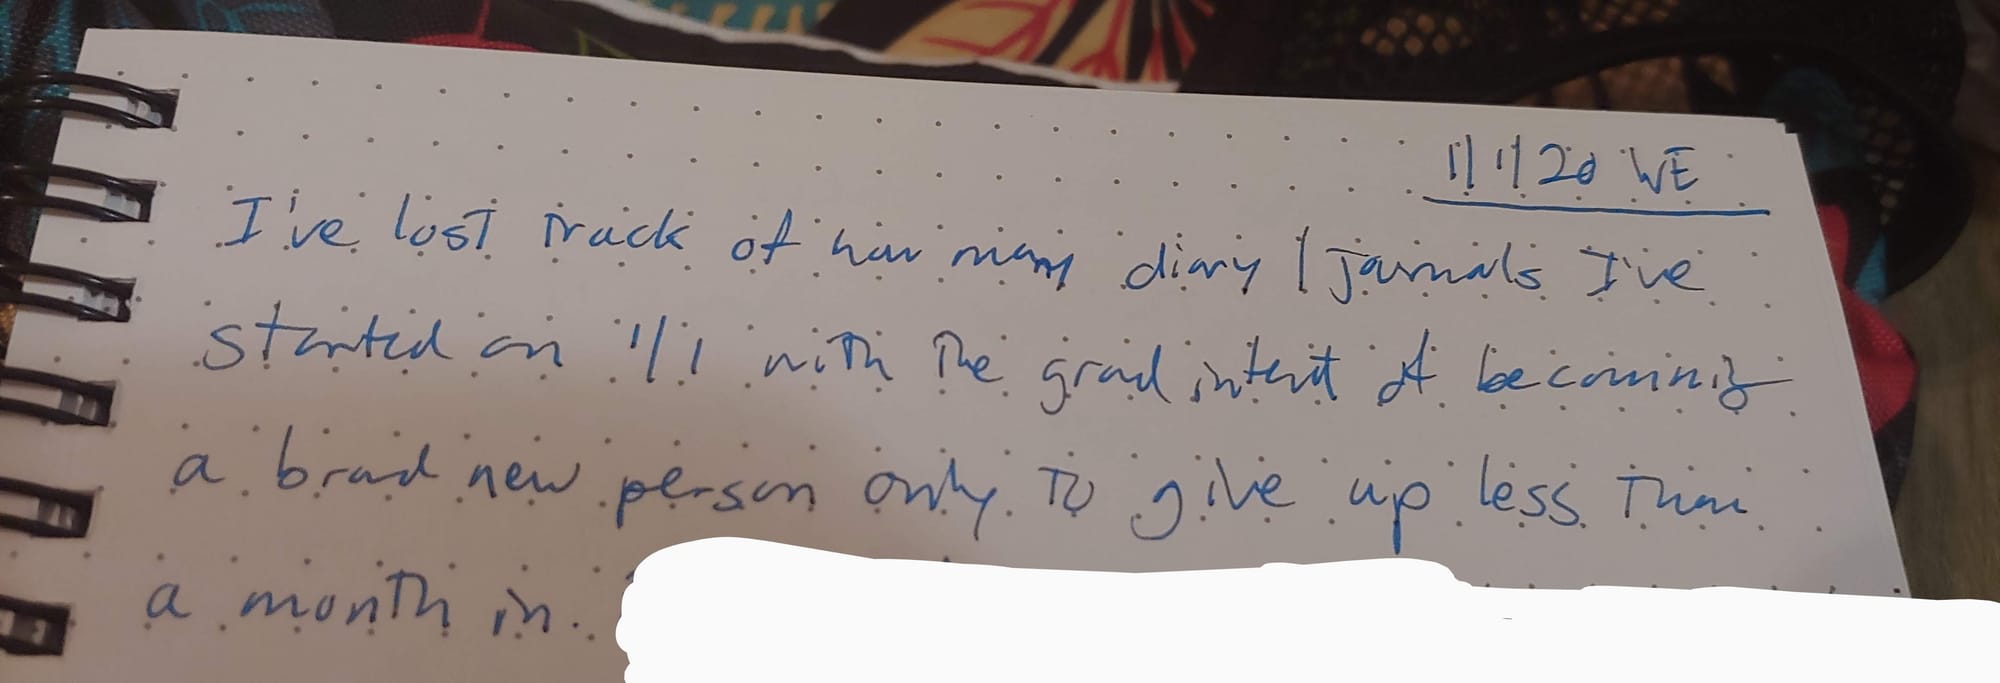 1/1/20 WE
I've lost track of how many diary / journals I've
started on 1/1 with the grand intent of becoming
a brand new person only to give up less than
a month in.